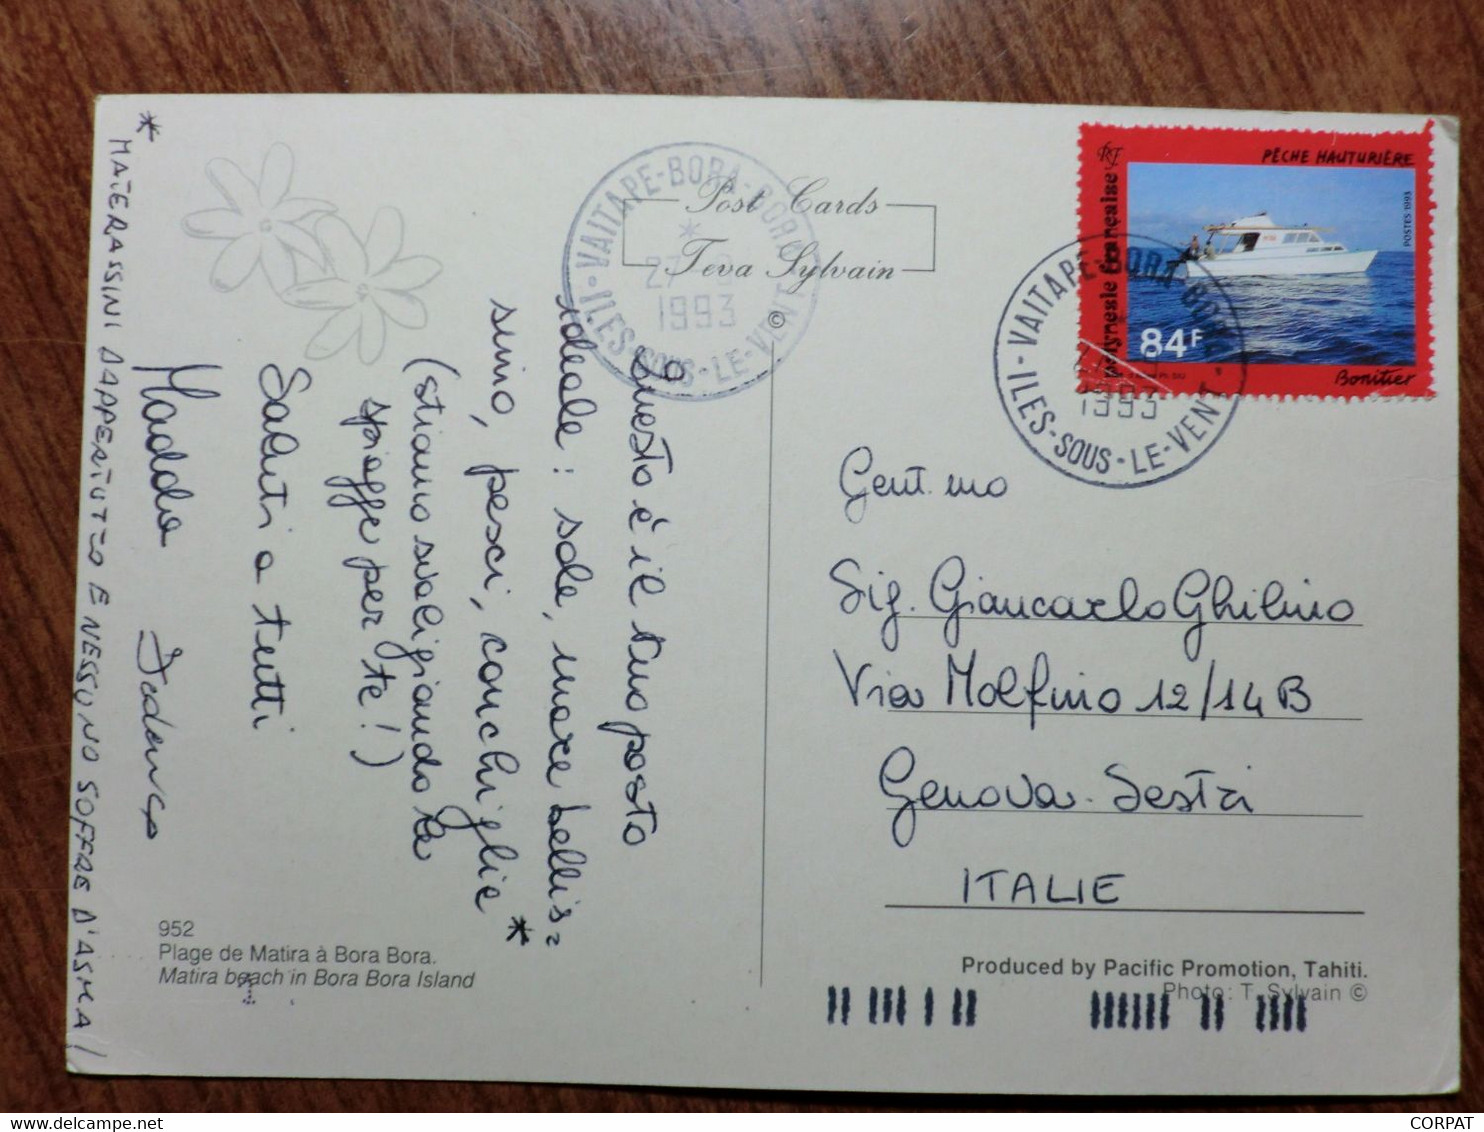 Questo è il tuo posto
ideale: sole, mare bellis=
simo, pesci, conchiglie *
(stiamo svaligiando le
spiagge per te!)
Saluti a tutti
Madda Federico
* MATERASSINI DAPPERTUTTO E NESSUNO SOFFRE D'ASMA!
952
Plage de Matira à Bora Bora.
Matira beach in Bora Bora Island
Post Cards
Teva Sylvain
©
VAITAPE-BORA-BORA
ILES-SOUS-LE-VENT
*
1993
RF
PÊCHE HAUTURIÈRE
Polynésie française
POSTES 1993
84F
Bonitier
VAITAPE-BORA-BORA
ILES-SOUS-LE-VENT
1993
Gent.mo
Sig. Giancarlo Ghilino
Via Molfino 12/14B
Genova-Sestri
ITALIE
Produced by Pacific Promotion, Tahiti.
Photo: T. Sylvain ©
CORPAT